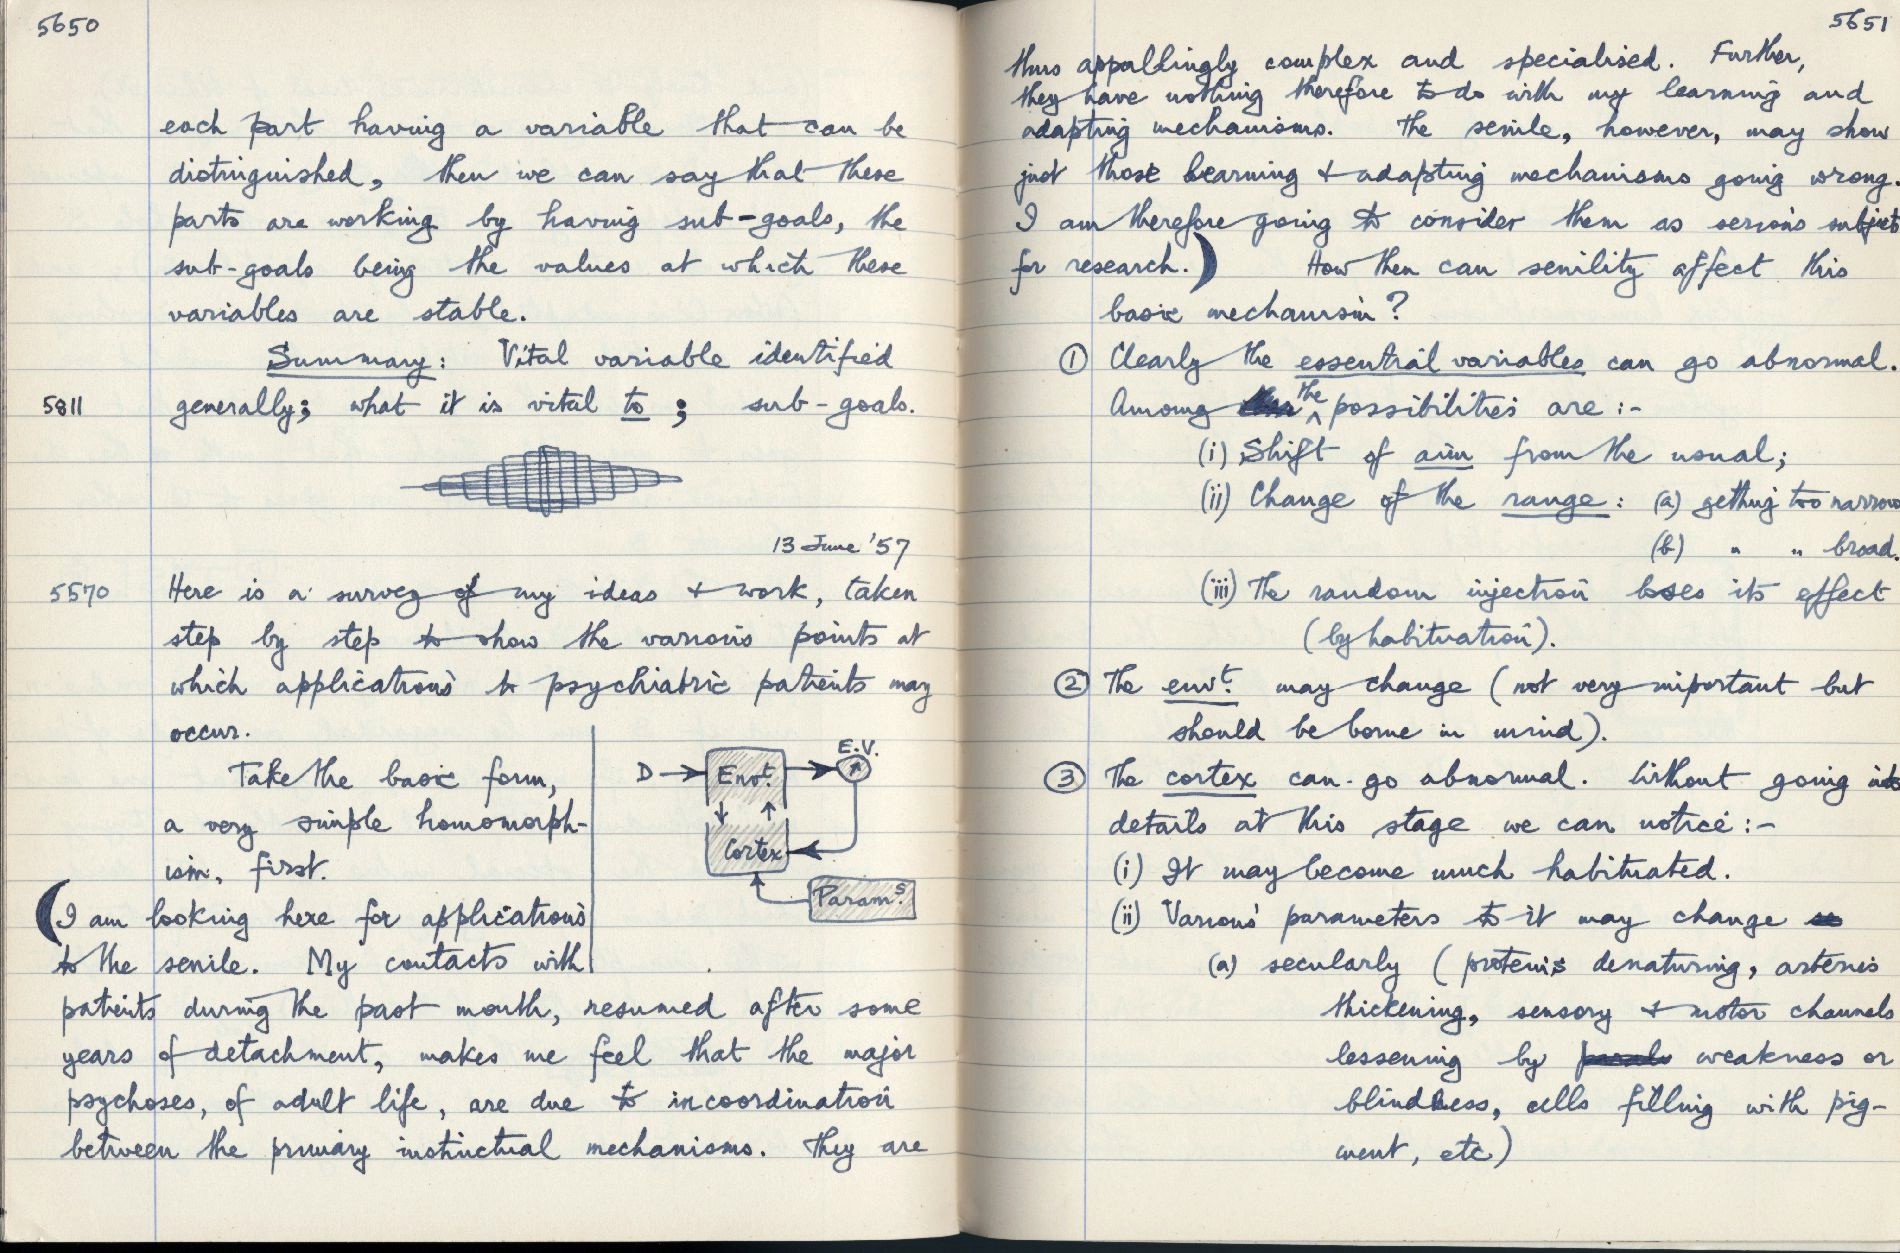 5650
each part having a variable that can be
distinguished, then we can say that these
parts are working by having sub-goals, the
sub-goals being the values at which these
variables are stable.
Summary: Vital variable identified
5811 generally; what it is vital to; sub-goals.
13 June '57
5570 Here is a survey of my ideas + work, taken
step by step to show the various points at
which applications to psychiatric patients may
occur.
Take the basic form,
a very simple homomorph-
ism, first.
D
Envt.
E.V.
Cortex
Params.
(I am looking here for applications
to the senile. My contacts with
patients during the past month, resumed after some
years of detachment, makes me feel that the major
psychoses, of adult life, are due to incoordination
between the primary instinctual mechanisms. They are
5651
thus appallingly complex and specialised. Further,
they have nothing therefore to do with my learning and
adapting mechanisms. The senile, however, may show
just those learning + adapting mechanisms going wrong.
I am therefore going to consider them as serious subjects
for research.) How then can senility affect this
basic mechanism?
① Clearly the essential variables can go abnormal.
Among the possibilities are :-
(i) Shift of aim from the usual;
(ii) Change of the range: (a) getting too narrow
(b) " " broad.
(iii) The random injection loses its effect
(by habituation).
② The envt. may change (not very important but
should be borne in mind).
③ The cortex can go abnormal. Without going into
details at this stage we can notice :-
(i) It may become much habituated.
(ii) Various parameters to it may change
(a) secularly (proteins denaturing, arteries
thickening, sensory + motor channels
lessening by weakness or
blindness, cells filling with pig-
ment, etc)